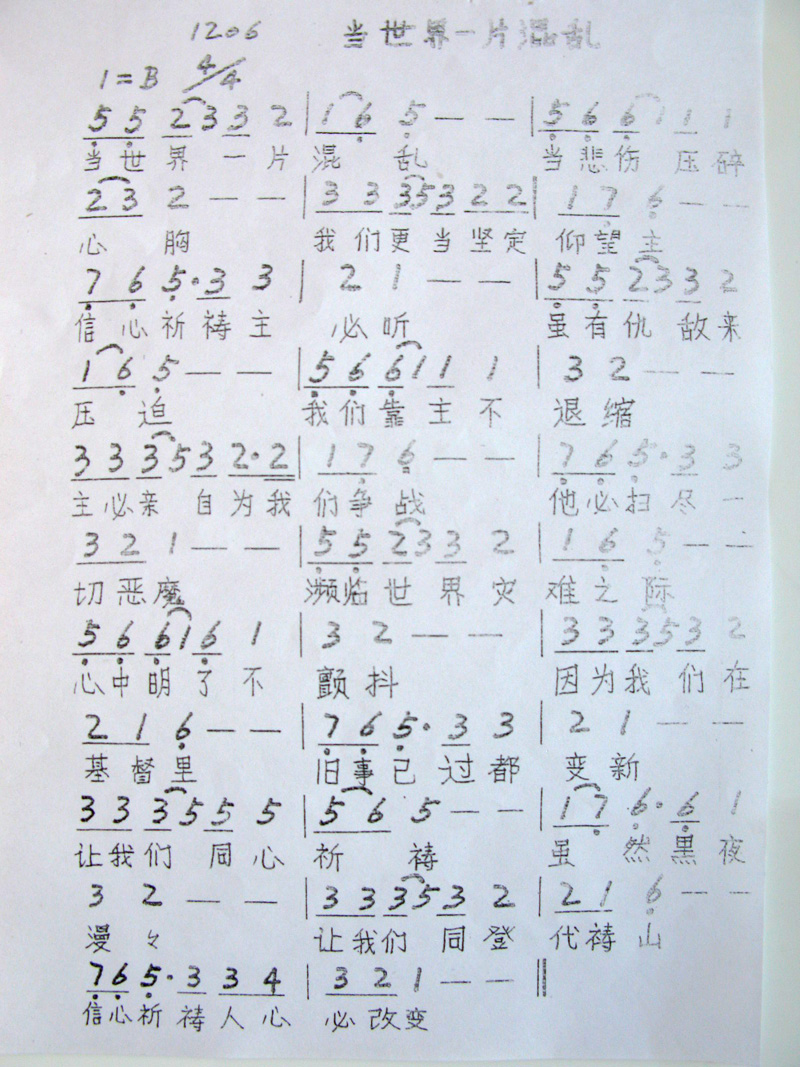 1206 当世界一片混乱
1=B 4/4
5 5 2 3 3 2 | 1 6 5 — — | 5 6 6 1 1 1
当世界一片混乱 当悲伤压碎
2 3 2 — — | 3 3 3 5 3 2 2 | 1 7 6 — —
心胸 我们更当坚定仰望主
7 6 5 · 3 3 | 2 1 — — | 5 5 2 3 3 2
信心祈祷主必听 虽有仇敌来
1 6 5 — — | 5 6 6 1 1 1 | 3 2 — —
压迫 我们靠主不退缩
3 3 3 5 3 2 · 2 | 1 7 6 — — | 7 6 5 · 3 3
主必亲自为我们争战 他必扫尽一
3 2 1 — — | 5 5 2 3 3 2 | 1 6 5 — —
切恶魔 濒临世界灾难之际
5 6 6 1 6 1 | 3 2 — — | 3 3 3 5 3 2
心中明了不颤抖 因为我们在
2 1 6 — — | 7 6 5 · 3 3 | 2 1 — —
基督里 旧事已过都变新
3 3 3 5 5 5 | 5 6 5 — — | 1 7 6 · 6 1
让我们同心祈祷 虽然黑夜
3 2 — — | 3 3 3 5 3 2 | 2 1 6 — —
漫々 让我们同登代祷山
7 6 5 · 3 3 4 | 3 2 1 — — ‖
信心祈祷人心必改变